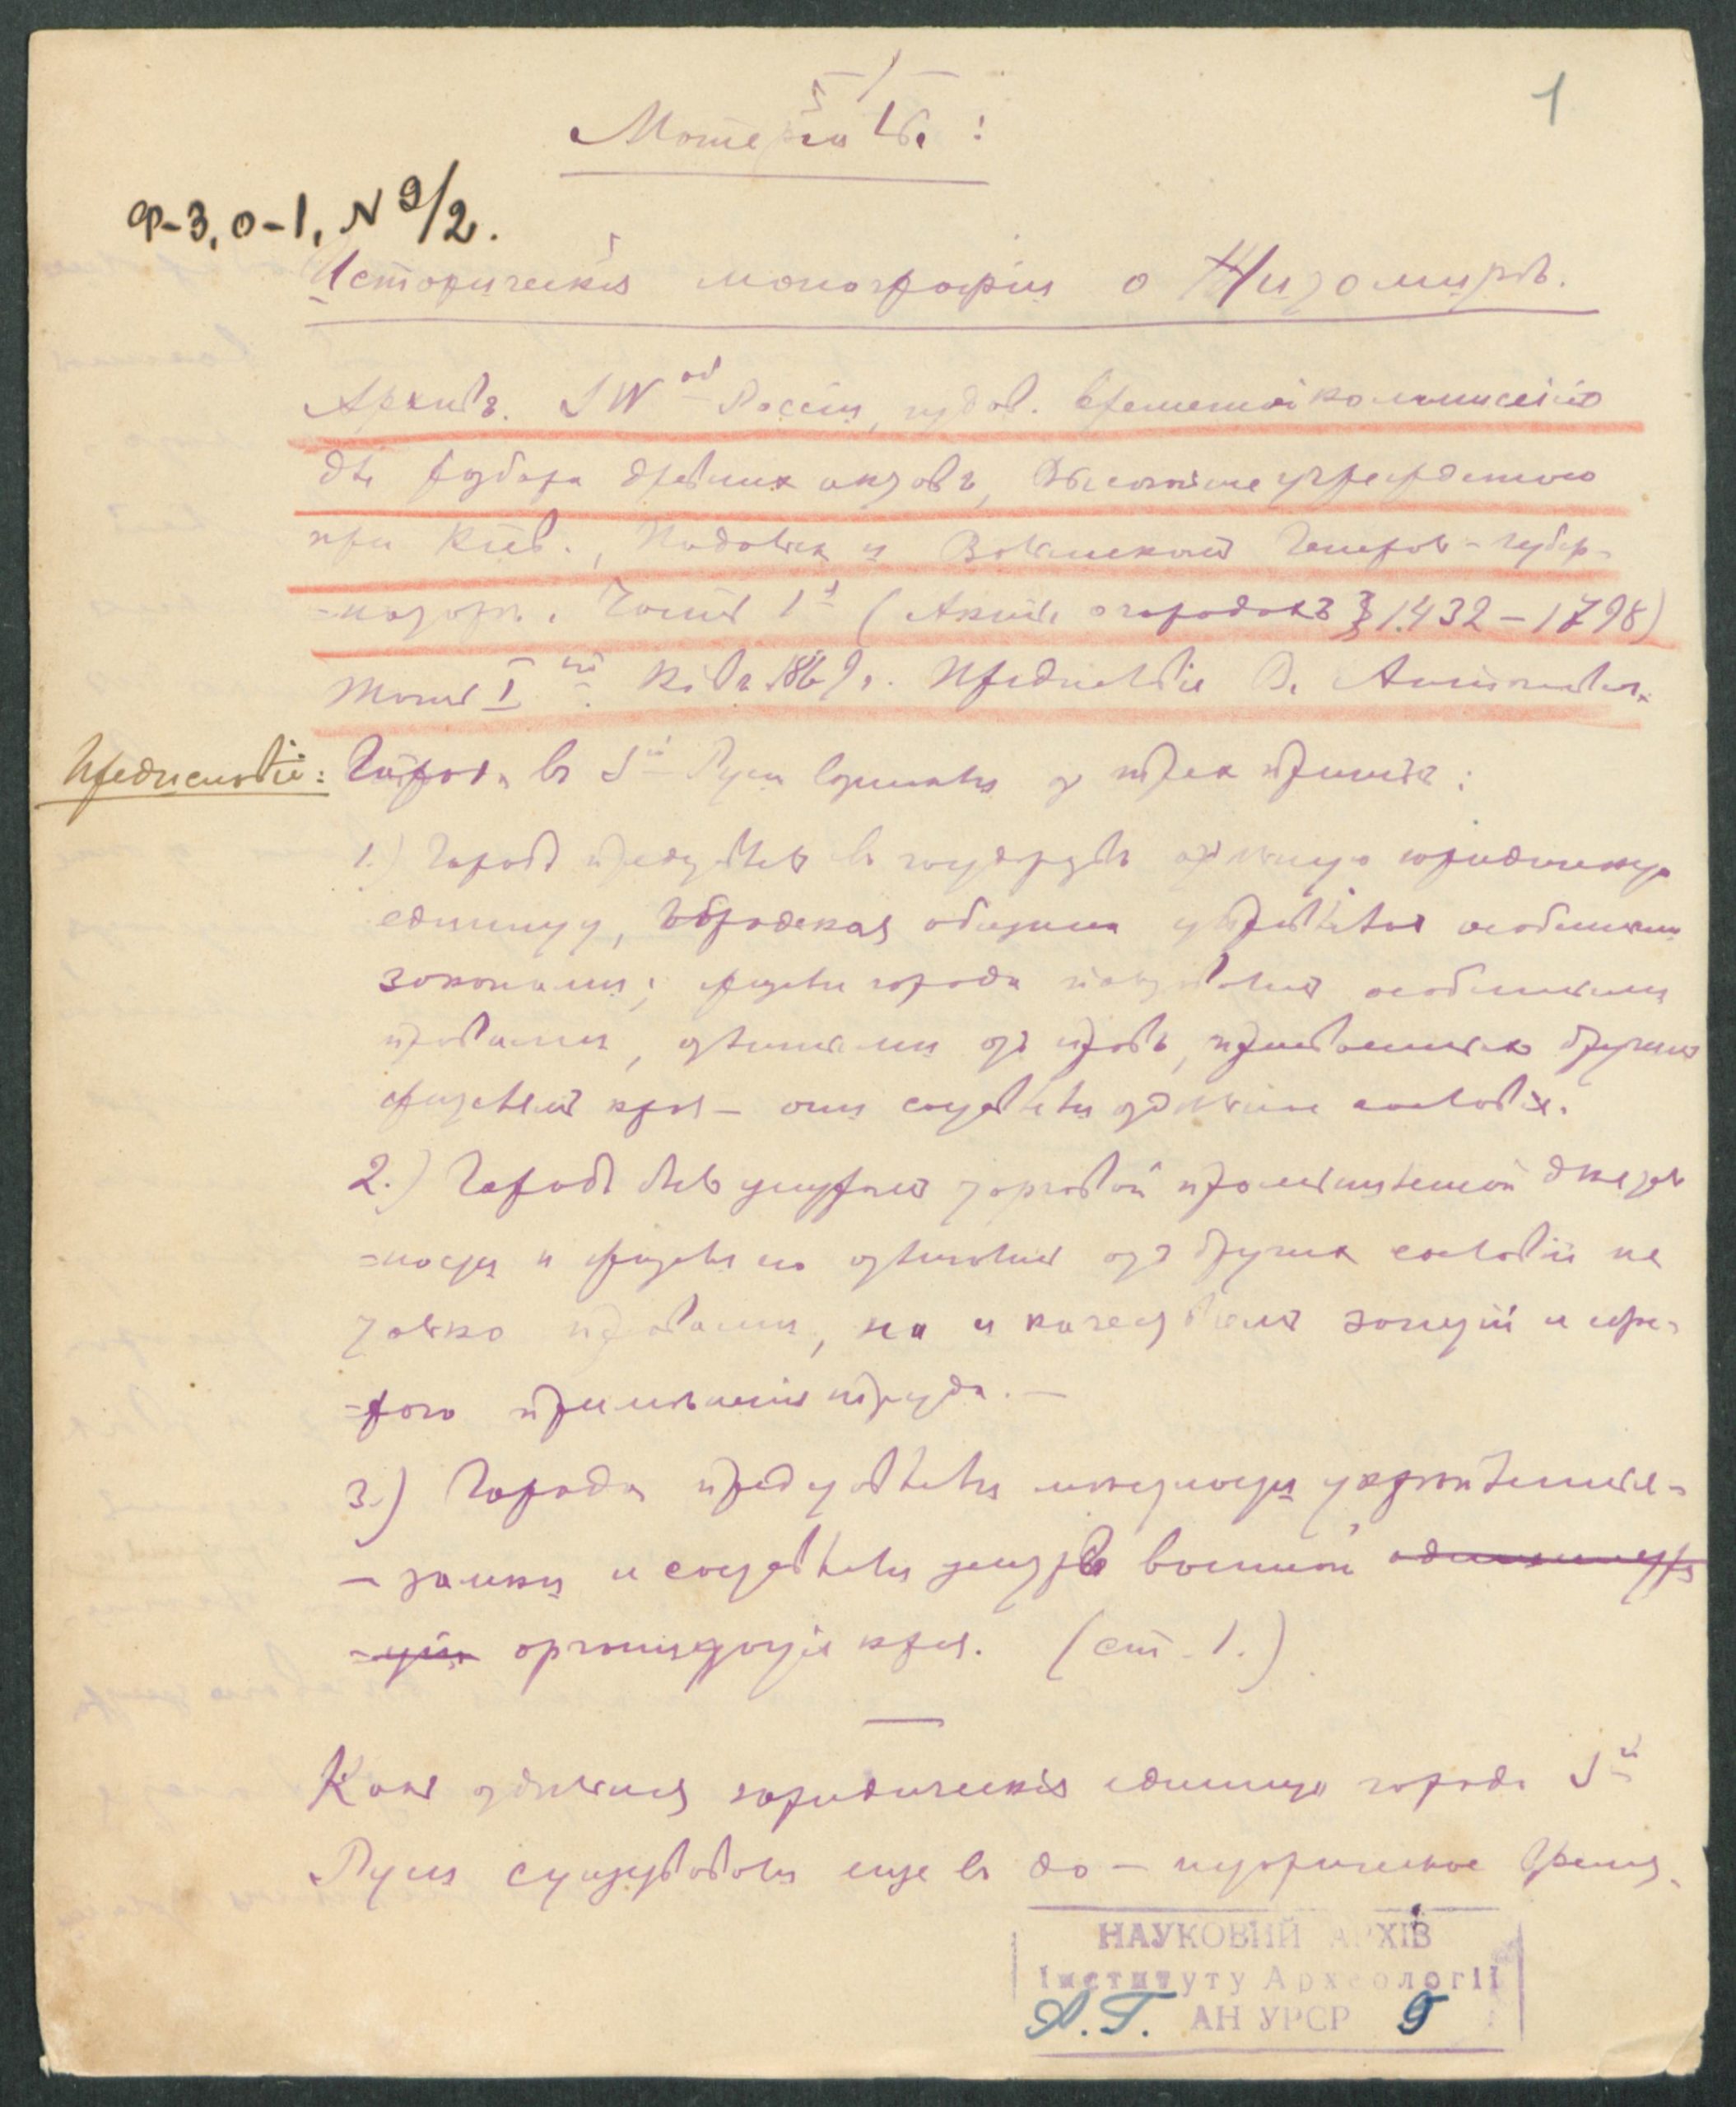 1
Матеріалы:
Ф-3, о-1, N 9/2.
Историческія монографіи о Житомирѣ.
Архивъ SW ой Россіи, издав. временной коммиссіею
для разбора древних актовъ, Высочайше учрежденною
при Кіев., Подольск и Волынскомъ Генерал-губер-
-наторѣ. Часть V (Акты о городахъ 1432-1798)
Томъ I ый Кіевъ 1869 г. Предисловіе В. Антоновича.
Предисловіе: Города въ S ой Руси возникли з трех причинъ:
1.) Городъ представлялъ въ государствѣ отдѣльную юридическую
единицу, городская община управлялась особенными
законами; жители города пользовались особенными
правами, отличными отъ правъ, присвоенныхъ другимъ
жителямъ края - они составляли отдѣльное сословіе.
2.) Городъ былъ центромъ торговой промышленной дѣятель
-ности и жители его отличались отъ другихъ сословій не
только правами, но и качествомъ занятій и
примѣненія труда. -
3.) Города представляли мѣстности укрѣпленныя -
- замки и составляли центръ военной
организаціи края. (ст. 1.)
Какъ отдѣльныя юридическія единицы города S ой
Руси существовали еще въ до-историческое время.
НАУКОВИЙ АРХІВ
Інституту Археології
А.Г. АН УРСР 5